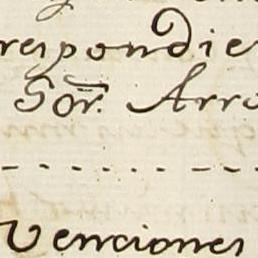 respondie
Sor. Arro
venciones